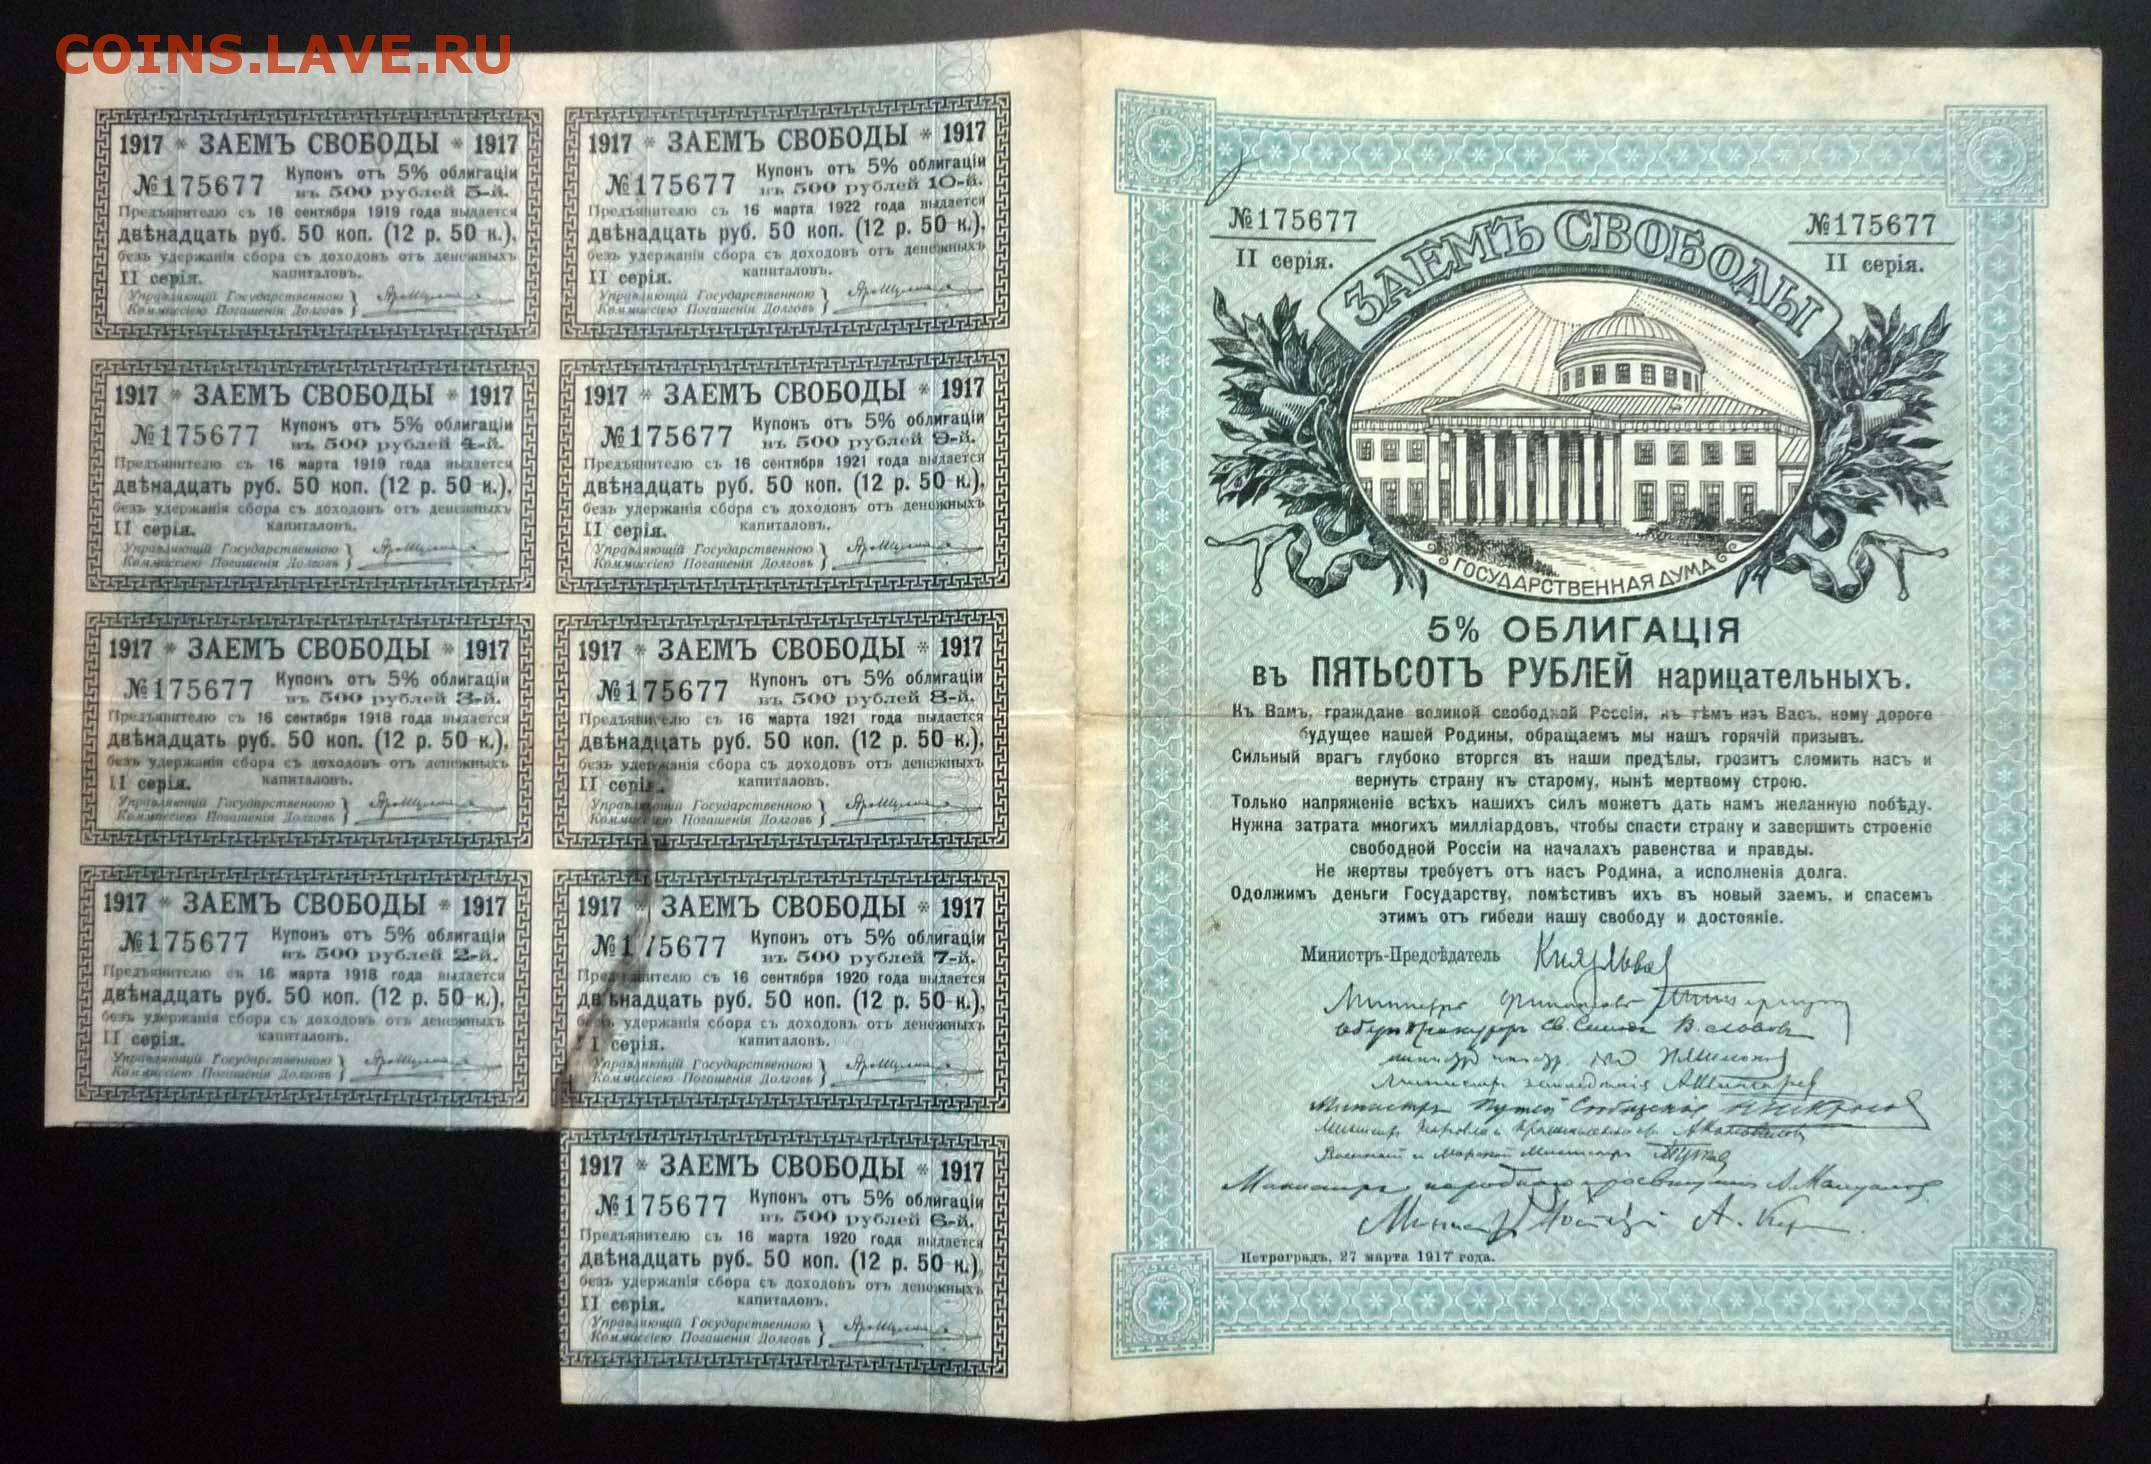 COINS.LAVE.RU
1917 * ЗАЕМЪ СВОБОДЫ * 1917
№175677 Купонъ отъ 5% облигаціи
въ 500 рублей 5-й.
Предъявителю съ 16 сентября 1919 года выдается
двѣнадцать руб. 50 коп. (12 р. 50 к.),
безъ удержанія сбора съ доходовъ отъ денежныхъ
II серія. капиталовъ.
Управляющій Государственною
Коммиссіею Погашенія Долговъ
1917 * ЗАЕМЪ СВОБОДЫ * 1917
№175677 Купонъ отъ 5% облигаціи
въ 500 рублей 4-й.
Предъявителю съ 16 марта 1919 года выдается
двѣнадцать руб. 50 коп. (12 р. 50 к.),
безъ удержанія сбора съ доходовъ отъ денежныхъ
II серія. капиталовъ.
Управляющій Государственною
Коммиссіею Погашенія Долговъ
1917 * ЗАЕМЪ СВОБОДЫ * 1917
№175677 Купонъ отъ 5% облигаціи
въ 500 рублей 3-й.
Предъявителю съ 16 сентября 1918 года выдается
двѣнадцать руб. 50 коп. (12 р. 50 к.),
безъ удержанія сбора съ доходовъ отъ денежныхъ
II серія. капиталовъ.
Управляющій Государственною
Коммиссіею Погашенія Долговъ
1917 * ЗАЕМЪ СВОБОДЫ * 1917
№175677 Купонъ отъ 5% облигаціи
въ 500 рублей 2-й.
Предъявителю съ 16 марта 1918 года выдается
двѣнадцать руб. 50 коп. (12 р. 50 к.),
безъ удержанія сбора съ доходовъ отъ денежныхъ
II серія. капиталовъ.
Управляющій Государственною
Коммиссіею Погашенія Долговъ
1917 * ЗАЕМЪ СВОБОДЫ * 1917
№175677 Купонъ отъ 5% облигаціи
въ 500 рублей 10-й.
Предъявителю съ 16 марта 1922 года выдается
двѣнадцать руб. 50 коп. (12 р. 50 к.),
безъ удержанія сбора съ доходовъ отъ денежныхъ
II серія. капиталовъ.
Управляющій Государственною
Коммиссіею Погашенія Долговъ
1917 * ЗАЕМЪ СВОБОДЫ * 1917
№175677 Купонъ отъ 5% облигаціи
въ 500 рублей 9-й.
Предъявителю съ 16 сентября 1921 года выдается
двѣнадцать руб. 50 коп. (12 р. 50 к.),
безъ удержанія сбора съ доходовъ отъ денежныхъ
II серія. капиталовъ.
Управляющій Государственною
Коммиссіею Погашенія Долговъ
1917 * ЗАЕМЪ СВОБОДЫ * 1917
№175677 Купонъ отъ 5% облигаціи
въ 500 рублей 8-й.
Предъявителю съ 16 марта 1921 года выдается
двѣнадцать руб. 50 коп. (12 р. 50 к.),
безъ удержанія сбора съ доходовъ отъ денежныхъ
II серія. капиталовъ.
Управляющій Государственною
Коммиссіею Погашенія Долговъ
1917 * ЗАЕМЪ СВОБОДЫ * 1917
№175677 Купонъ отъ 5% облигаціи
въ 500 рублей 7-й.
Предъявителю съ 16 сентября 1920 года выдается
двѣнадцать руб. 50 коп. (12 р. 50 к.),
безъ удержанія сбора съ доходовъ отъ денежныхъ
II серія. капиталовъ.
Управляющій Государственною
Коммиссіею Погашенія Долговъ
1917 * ЗАЕМЪ СВОБОДЫ * 1917
№175677 Купонъ отъ 5% облигаціи
въ 500 рублей 6-й.
Предъявителю съ 16 марта 1920 года выдается
двѣнадцать руб. 50 коп. (12 р. 50 к.),
безъ удержанія сбора съ доходовъ отъ денежныхъ
II серія. капиталовъ.
Управляющій Государственною
Коммиссіею Погашенія Долговъ
№175677 №175677
II серія. II серія.
ЗАЕМЪ СВОБОДЫ
ГОСУДАРСТВЕННАЯ ДУМА
5% ОБЛИГАЦІЯ
въ ПЯТЬСОТЪ РУБЛЕЙ нарицательныхъ.
Къ Вамъ, граждане великой свободной Россіи, къ тѣмъ изъ Васъ, кому дорого
будущее нашей Родины, обращаемъ мы нашъ горячій призывъ.
Сильный врагъ глубоко вторгся въ наши предѣлы, грозитъ сломить насъ и
вернуть страну къ старому, нынѣ мертвому строю.
Только напряженіе всѣхъ нашихъ силъ можетъ дать намъ желанную побѣду.
Нужна затрата многихъ милліардовъ, чтобы спасти страну и завершить строеніе
свободной Россіи на началахъ равенства и правды.
Не жертвы требуетъ отъ насъ Родина, а исполненія долга.
Одолжимъ деньги Государству, помѣстивъ ихъ въ новый заемъ, и спасемъ
этимъ отъ гибели нашу свободу и достояніе.
Министръ-Предсѣдатель Князь Львов
Министръ Финансовъ
Оберъ Прокуроръ Св. Синода В. Львов
Министръ земледѣлія А. Шингарев
Министръ Путей Сообщенія Н. Некрасов
Министръ Торговли и Промышленности А. Коновалов
Военный и Морской Министръ
Министръ народного просвѣщенія А. Мануилов
Министръ Юстиціи А. Кер
Петроградъ, 27 марта 1917 года.